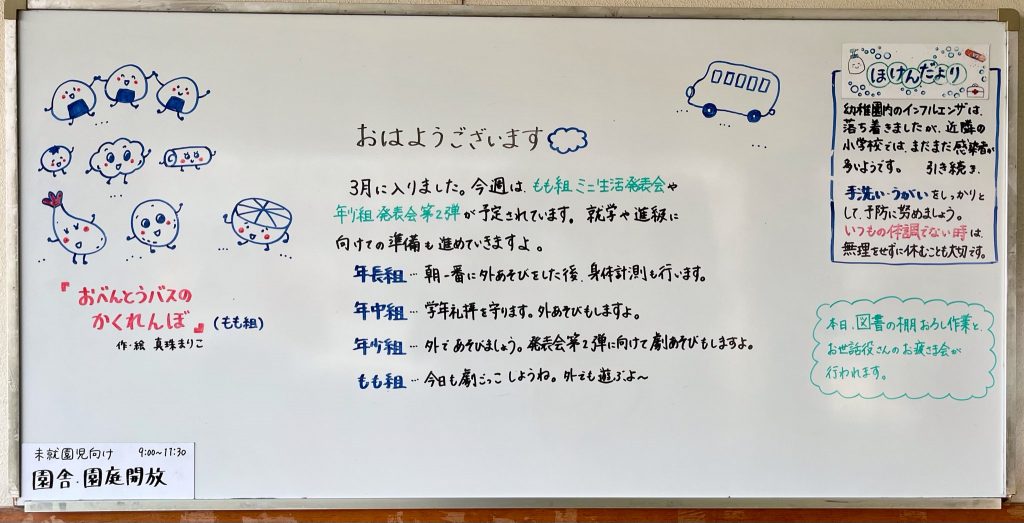 おはようございます
3月に入りました。今週は、もも組 ミニ生活発表会や
年少組 発表会第2弾が予定されています。就学や進級に
向けての準備も進めていきますよ。
年長組…朝一番に外あそびをした後、身体計測も行います。
年中組…学年礼拝を守ります。外あそびもしますよ。
年少組…外であそびましょう。発表会第2弾に向けて劇あそびもしますよ。
もも組…今日も劇ごっこしようね。外でも遊ぶよ〜
『おべんとうバスの
かくれんぼ』(もも組)
作・絵 真珠まりこ
未就園児向け 9:00~11:30
園舎・園庭開放
ほけんだより
幼稚園内のインフルエンザは、
落ち着きましたが、近隣の
小学校では、まだまだ感染者が
多いようです。 引き続き、
手洗い・うがいをしっかりと
して、予防に努めましょう。
いつもの体調でない時は、
無理をせずに休むことも大切です。
本日、図書の棚おろし作業と、
お世話役さんのお疲さま会が
行われます。